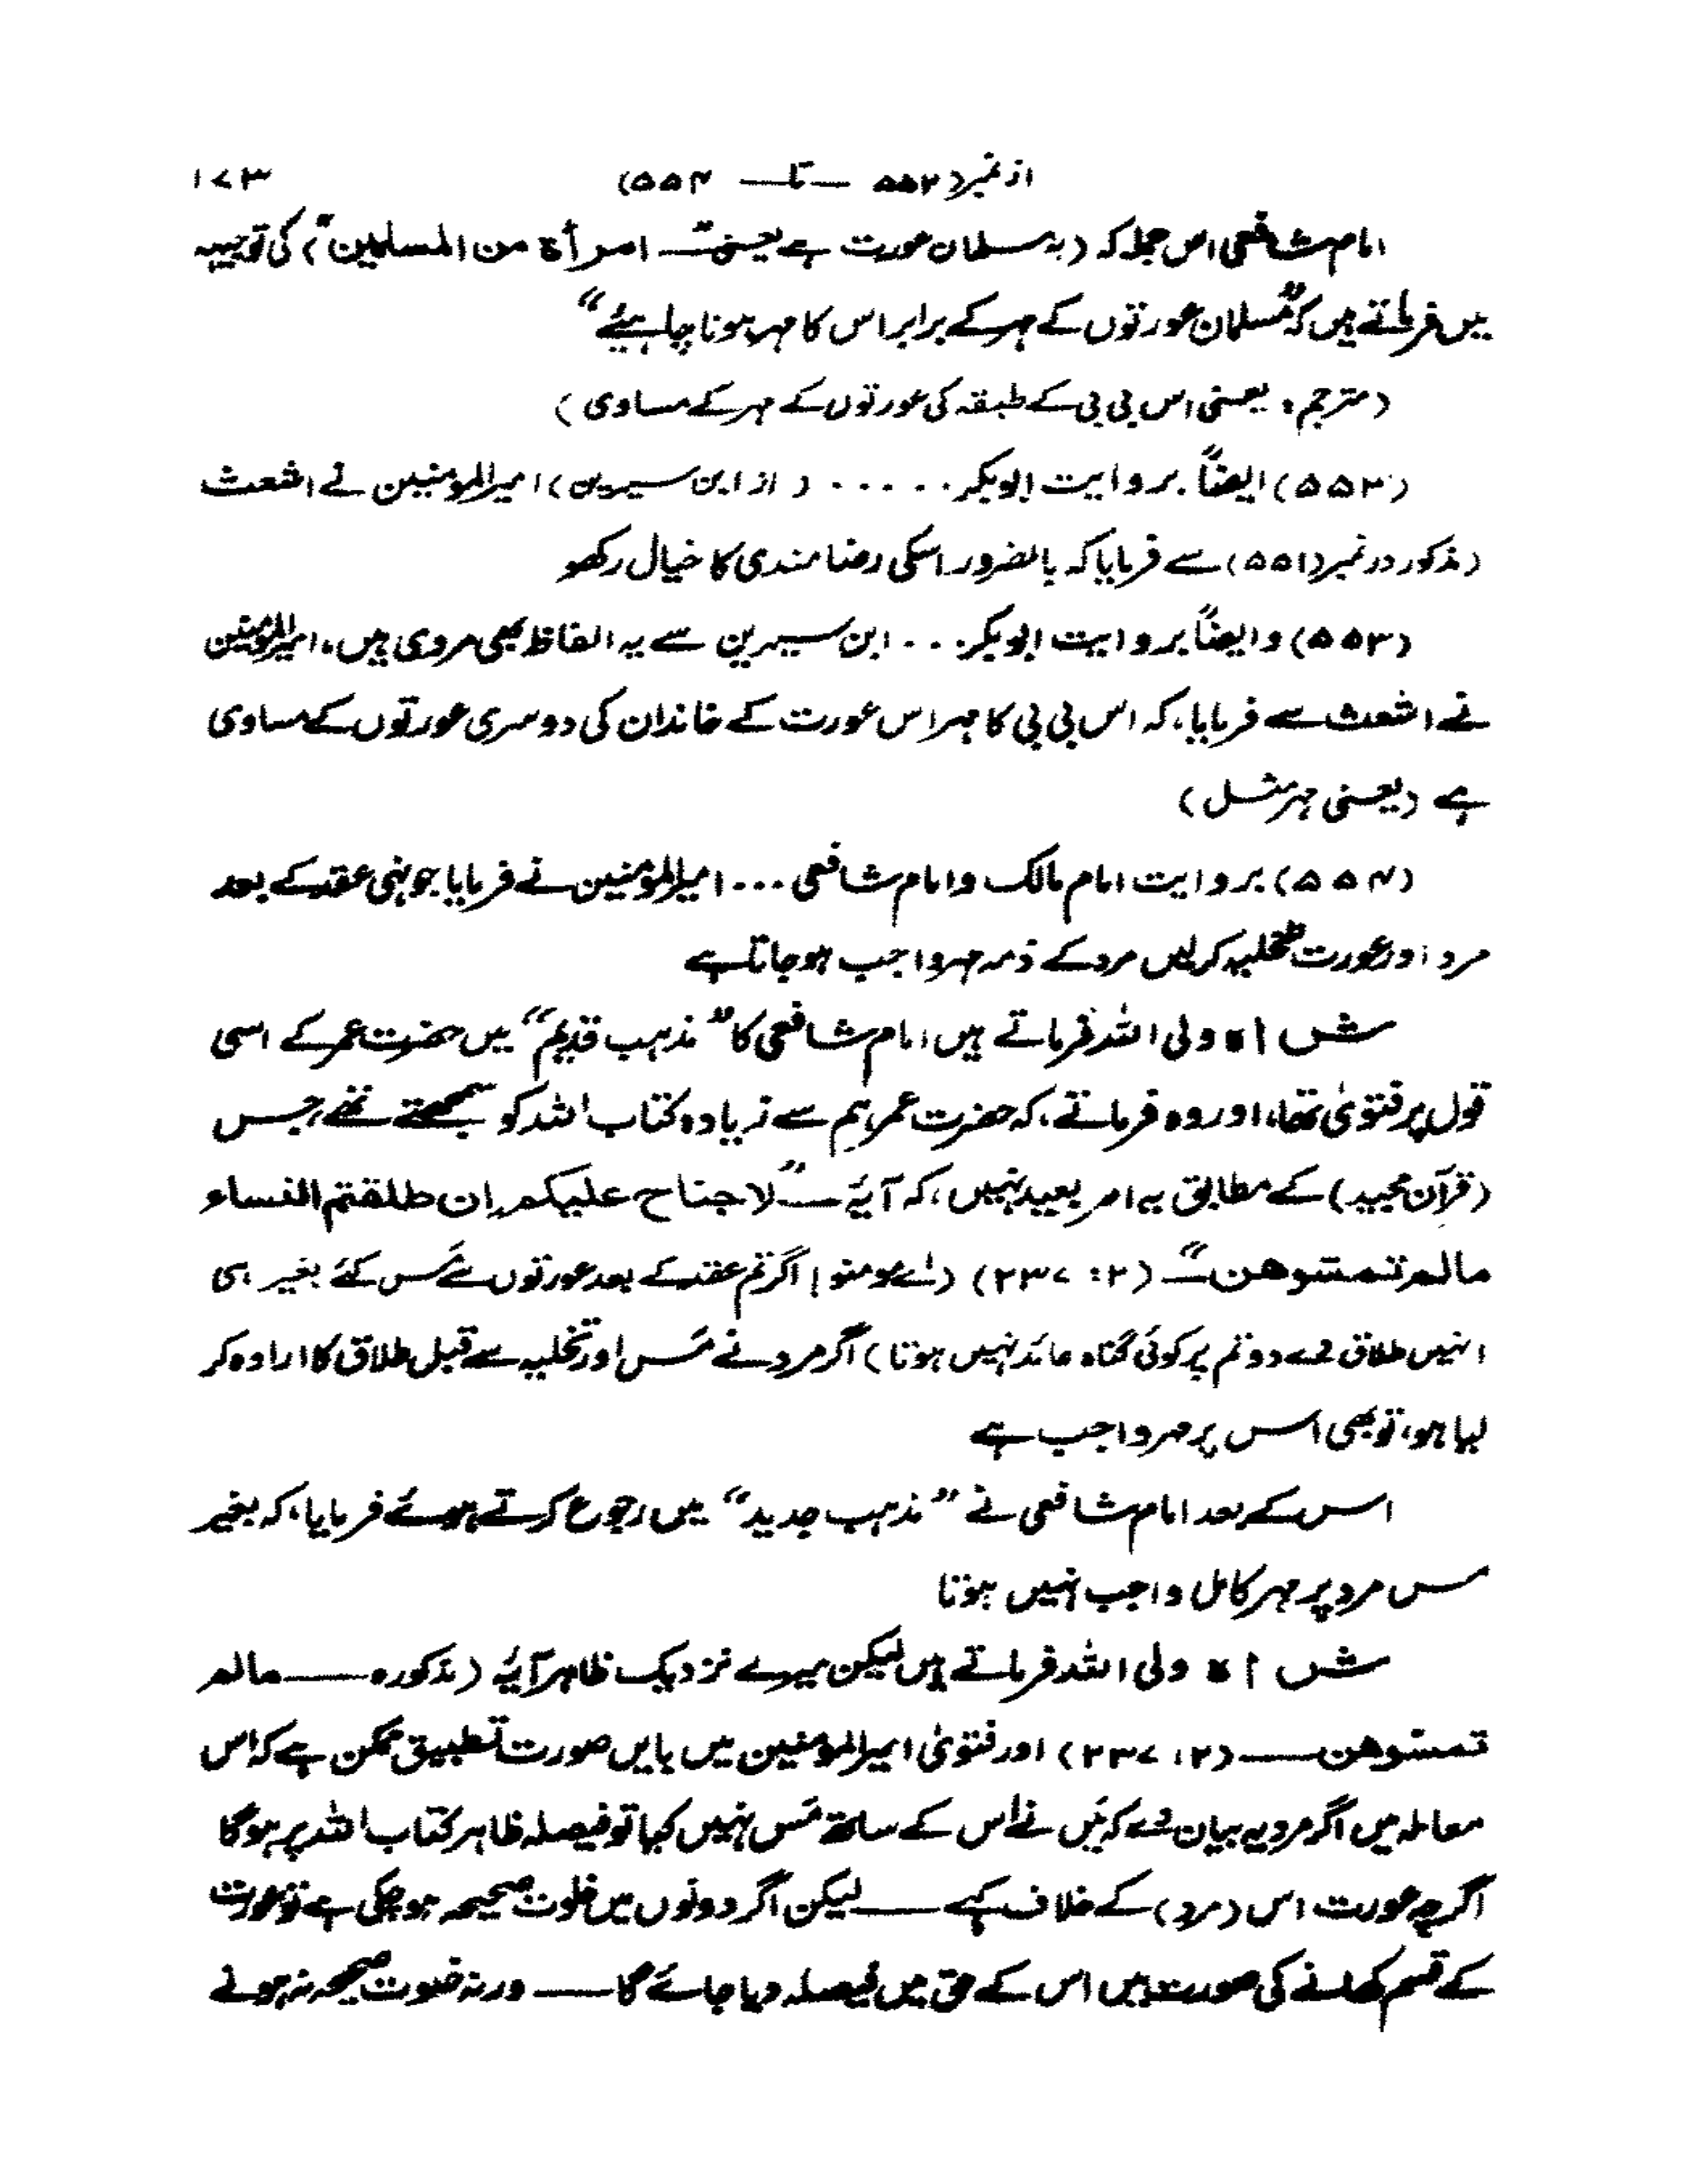 ۱۷۳ از نمبر (۵۵۲ — تا — ۵۵۴)
امام شافعی اس جملہ کہ (یہ مسلمان عورت ہے یعنی ”امرأة من المسلمین“) کی توجیہہ
میں فرماتے ہیں کہ ”مسلمان عورتوں کے مہر کے برابر اس کا مہر ہونا چاہیئے“
(مترجم: یعنی اس بی بی کے طبقہ کی عورتوں کے مہر کے مساوی)
(۵۵۲) ایضاً بروایت ابوبکر..... (از ابن سیرین) امیرالمومنین نے اشعث
(مذکور در نمبر (۵۵۱) سے فرمایا کہ بالضرور اسکی رضا مندی کا خیال رکھو
(۵۵۳) و ایضاً بروایت ابوبکر... ابن سیرین سے یہ الفاظ بھی مروی ہیں، امیرالمؤمنین
نے اشعث سے فرمایا، کہ اس بی بی کا مہر اس عورت کے خاندان کی دوسری عورتوں کے مساوی
ہے (یعنی مہر مثل)
(۵۵۴) بروایت امام مالک و امام شافعی... امیرالمؤمنین نے فرمایا جونہی عقد کے بعد
مرد اور عورت تخلیہ کرلیں مرد کے ذمہ مہر واجب ہوجاتا ہے
ش ا* ولی اللہ فرماتے ہیں امام شافعی کا ”مذہب قدیم“ میں حضرت عمر کے اسی
قول پر فتویٰ تھا، اور وہ فرماتے، کہ حضرت عمر ہم سے زیادہ کتاب اللہ کو سمجھتے تھے، جس
(قرآن مجید) کے مطابق یہ امر بعید نہیں، کہ آیۂ — ”لا جناح علیکم إن طلقتم النساء
مالم تمسّوھن“ — (۲: ۲۳۷) (اے مومنو! اگر تم عقد کے بعد عورتوں سے مس کئے بغیر ہی
انہیں طلاق دے دو تم پر کوئی گناہ عائد نہیں ہوتا) اگر مرد نے مَس اور تخلیہ سے قبل طلاق کا ارادہ کر
لیا ہو، تو بھی اس پر مہر واجب ہے
اس کے بعد امام شافعی نے ”مذہب جدید“ میں رجوع کرتے ہوئے فرمایا، کہ بغیر
مس مرد پر مہر کامل واجب نہیں ہوتا
ش ا* ولی اللہ فرماتے ہیں لیکن میرے نزدیک ظاہر آیۂ (مذکورہ — مالم
تمسّوھن — (۲: ۲۳۷) اور فتویٰ امیرالمؤمنین میں بایں صورت تطبیق ممکن ہے کہ اس
معاملہ میں اگر مرد یہ بیان دے کہ میَں نے اس کے ساتھ مَس نہیں کیا تو فیصلہ ظاہر کتاب اللہ پر ہوگا
اگرچہ عورت اس (مرد) کے خلاف کہے — لیکن اگر دونوں میں خلوت صحیحہ ہوچکی ہے تو عورت
کے قسم کھانے کی صورت میں اس کے حق میں فیصلہ دیا جائے گا — ورنہ خلوت صحیحہ نہ ہونے